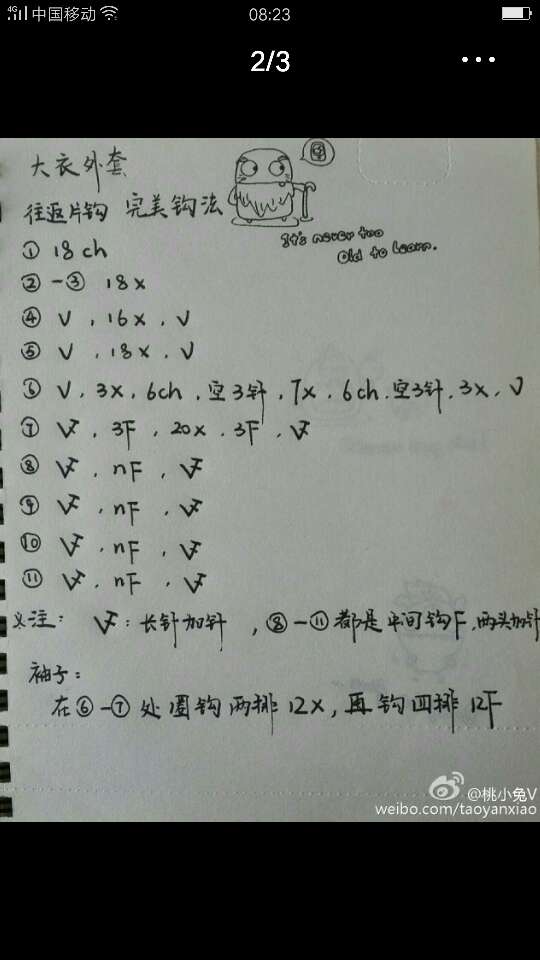 4G 中国移动 08:23
2/3
大衣外套
往返片钩 完美钩法
It's never too
Old to Learn.
① 18 ch
②-③ 18 x
④ V , 16 x , V
⑤ V , 18 x , V
⑥ V , 3x , 6ch , 空3针 , 7x , 6ch , 空3针 , 3x , V
⑦ , 3F , 20x , 3F ,
⑧ , nF ,
⑨ , nF ,
⑩ , nF ,
⑪ , nF ,
注: : 长针加针 , ⑧-⑪ 都是中间钩F , 两头加针
袖子:
在⑥-⑦处圈钩两排12x , 再钩四排12F
@桃小兔V
weibo.com/taoyanxiao